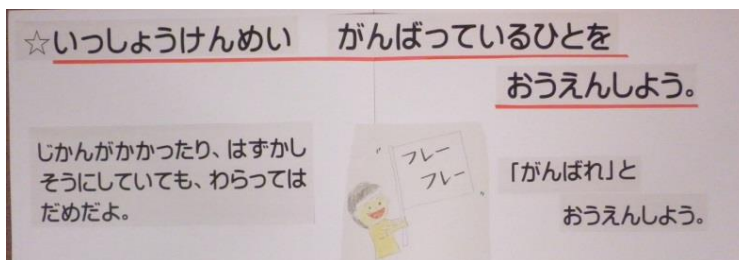 ☆いっしょうけんめい　がんばっているひとを
おうえんしよう。
じかんがかかったり、はずかし
そうにしていても、わらっては
だめだよ。
フレー
フレー
「がんばれ」と
おうえんしよう。